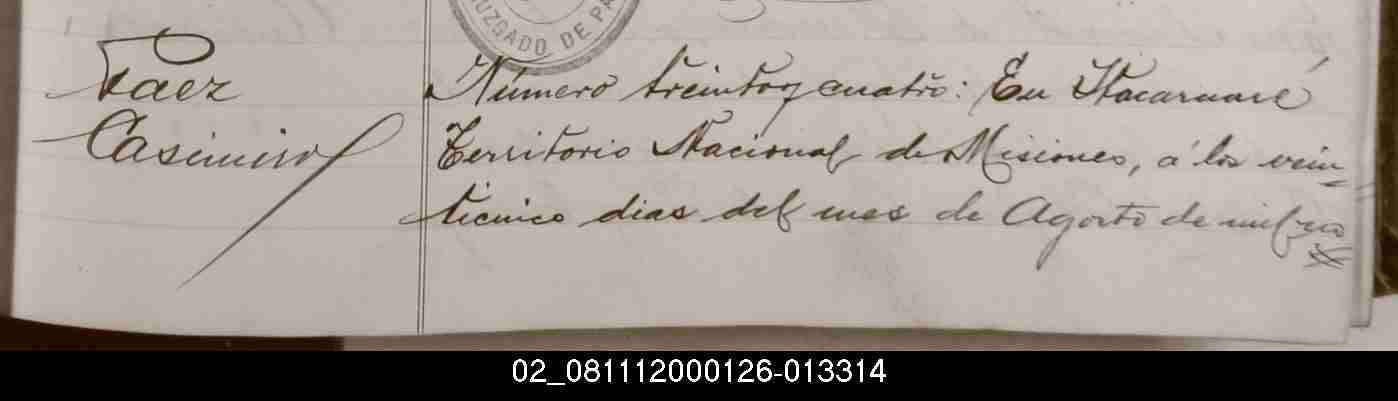 JUZGADO DE PA
Paez
Casimiro
Número treinta y cuatro: En Itacaruaré
Territorio Nacional de Misiones, á los vein-
ticinco dias del mes de Agosto de mil no
02_081112000126-013314